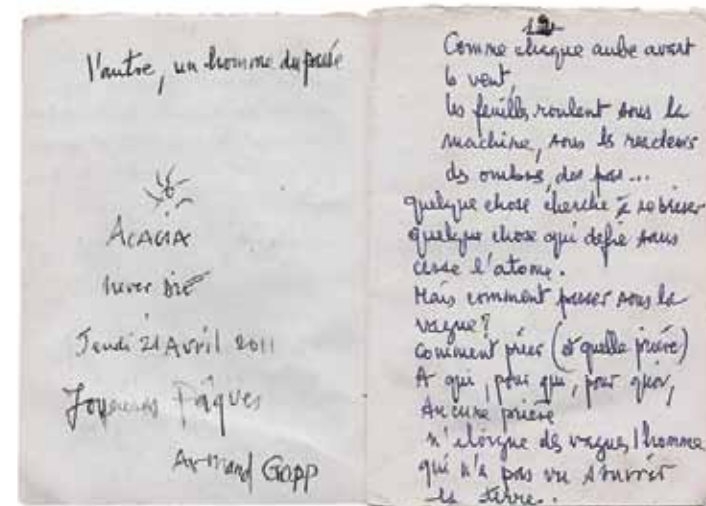 l'autre, un homme du passé
ACACIA
never die
Jeudi 21 Avril 2011
Joyeuses Pâques
Armand Gapp
12
Comme chaque aube avant
le vent,
les feuilles roulent sous la
machine, sous les
des ombres, des pas...
quelque chose cherche à se briser
quelque chose qui défie sans
cesse l'atome.
Mais comment passer sous la
vague?
Comment prier (et quelle prière)
A qui, pour qui, pour quoi,
Aucune prière
n'éloigne des vagues l'homme
qui n'a pas vu s'ouvrir
la terre.